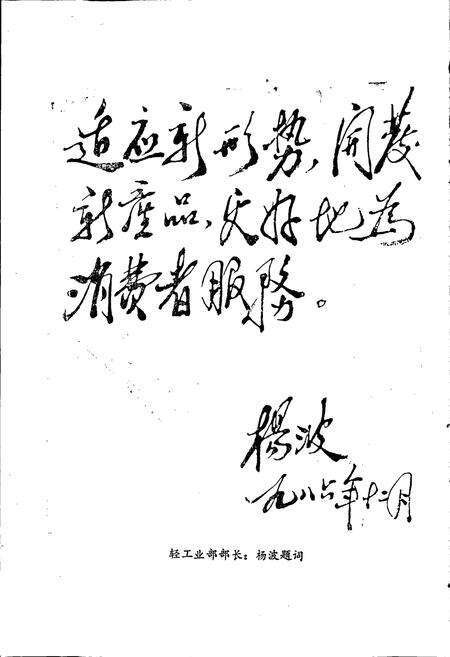 适应新形势、開发
新產品、更好地为
消费者服務。
楊波
九八六年十二月
轻工业部部长：杨波题词